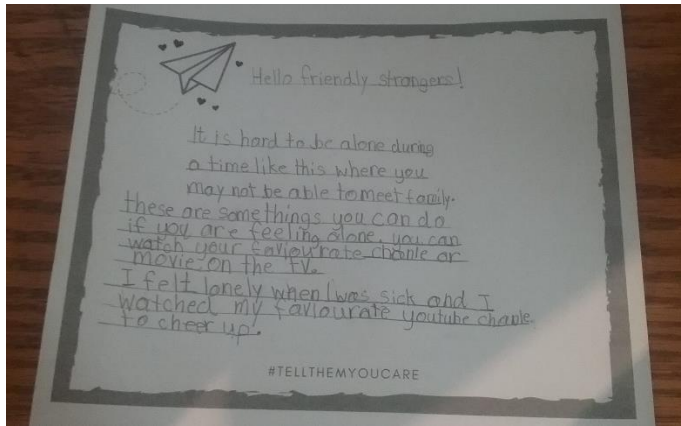 Hello friendly strangers!
It is hard to be alone during
a time like this where you
may not be able to meet family.
these are some things you can do
if you are feeling alone. you can
watch your faviourate chanle or
movie on the TV.
I felt lonely when I was sick and I
watched my faviourate youtube chanle.
to cheer up!
#TELLTHEMYOUCARE